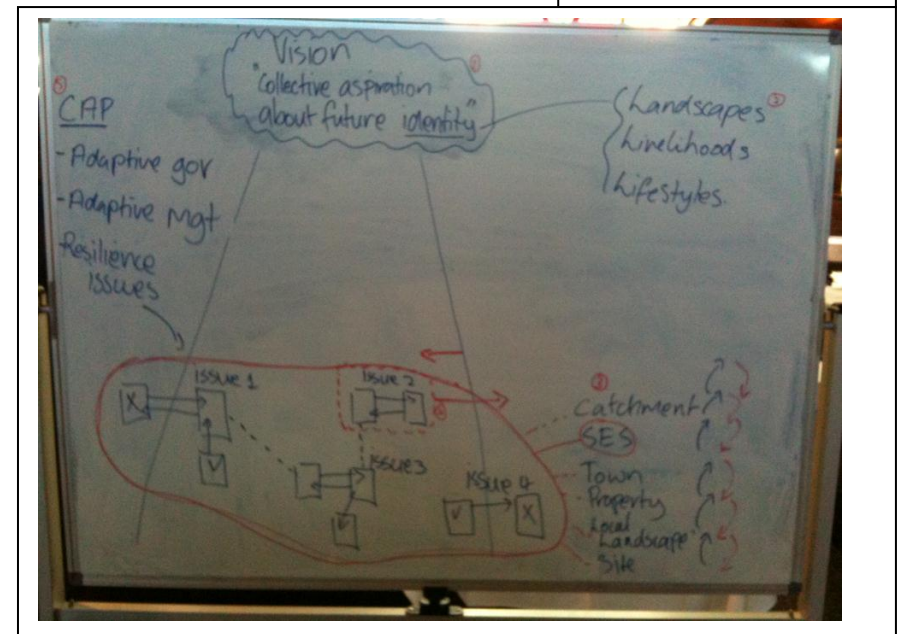 Vision
"Collective aspiration
about future identity"
①
⑤
CAP
-Adaptive gov
-Adaptive Mgt
-Resilience
Issues
Landscapes
Livelihoods
Lifestyles
Issue 1
X
V
Issue 2
Issue 3
V
Issue 4
V
X
Catchment
SES
Town
Property
Local
Landscape
Site